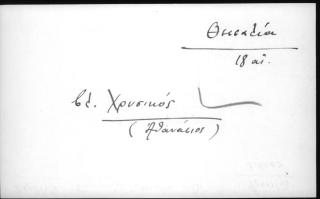 Θεσσαλία
18 αἰ.
βλ. Χρυσικός
(Ἀθανάσιος)